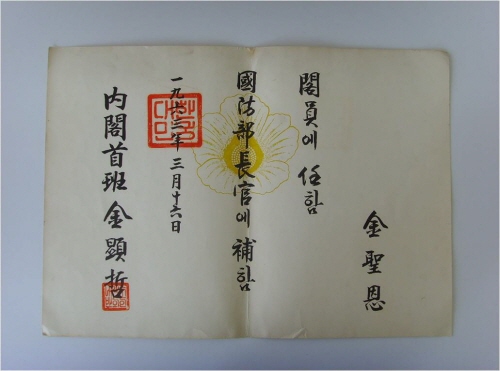 金聖恩
閣員에 任함
國防部長官에 補함
一九六三年 三月十六日
內閣首班 金顯哲